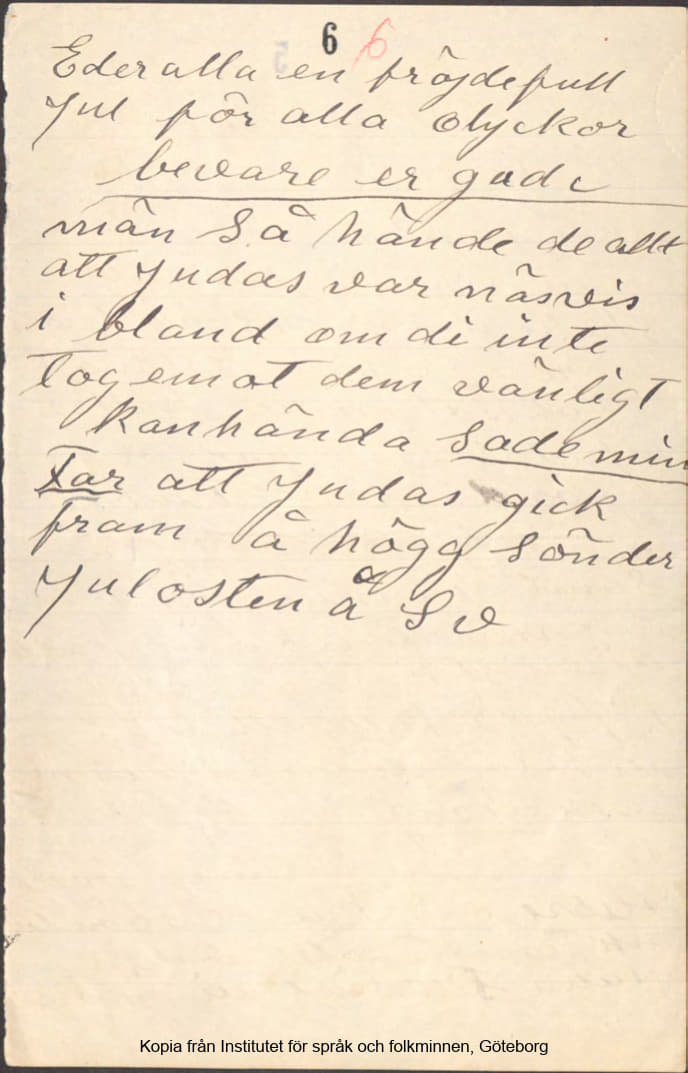 6 6
Eder alla en fröjdefull
Jul för alla olyckor
bevare er gud
män så hände de allt
att Judas var näsvis
i bland om di inte
tog emot dem vänligt
kanhända sade min
Far att Judas gick
fram å högg sönder
Julosten å s v
Kopia från Institutet för språk och folkminnen, Göteborg